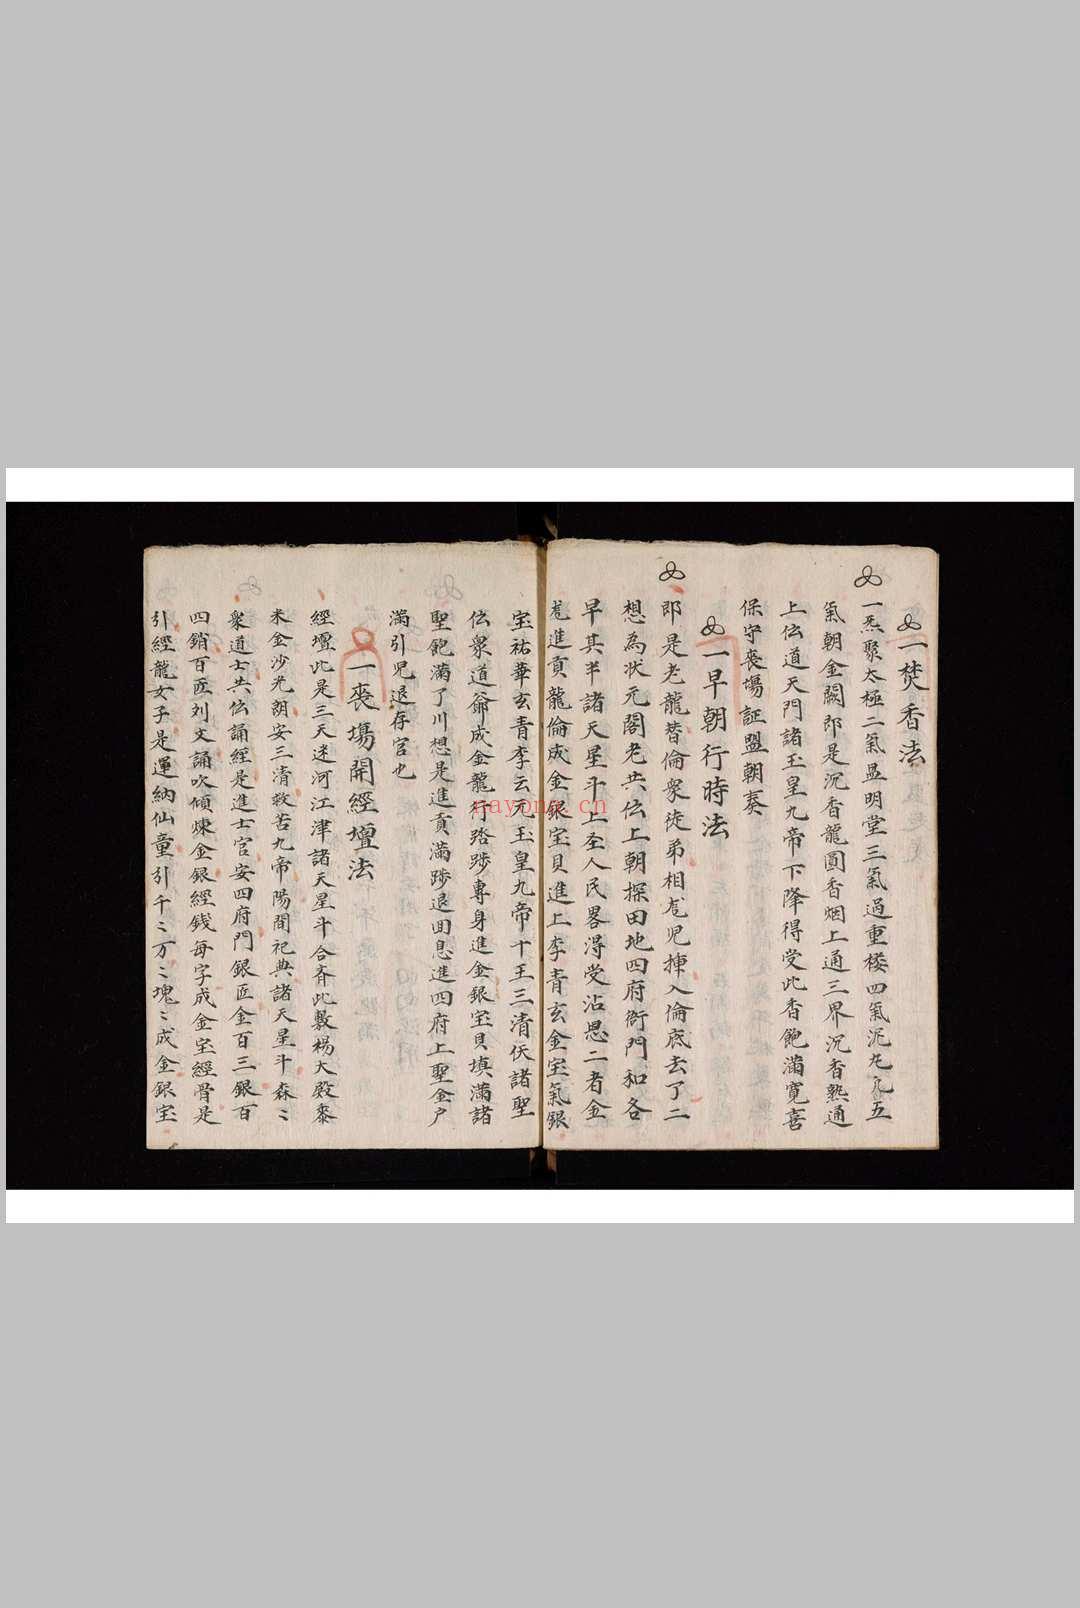 一焚香法
一炁聚太極二氣显明堂三氣過重楼四氣沉九九五
氣朝金闕即是沉香龍圓香烟上通三界沉香熟通
上伝道天門諸玉皇九帝下降得受此香飽滿寬喜
保守喪塲証盟朝奏
一早朝行時法
即是老龍替倫衆徒弟相尨児揷入倫底去了二
想為状元閣老共伝上朝探田地四府衙門和各
早其半諸天星斗上圣人民畧淂受沾恩二者金
尨進貢龍倫成金銀宝貝進上李青玄金宝氣銀
宝祐華玄青李云元玉皇九帝十王三清伏諸聖
伝衆道爺成金龍行踏踄專身進金銀宝貝填滿諸
聖飽滿了川想是進貢滿踄退囬息進四府上聖金户
滿引児退存官也
一喪塲開經壇法
經壇此是三天迷河江津諸天星斗合斉此数楊大殿黍
米金沙光朗安三清救苦九帝陽間祀典諸天星斗森〻
衆道士共伝誦經是進士官安四府門銀匠金百三銀百
四銷百匠刘文誦吹傾煉金銀經錢每字成金宝經骨是
引經龍女子是運納仙童引千〻万〻塊〻成金銀宝
nayona.cn